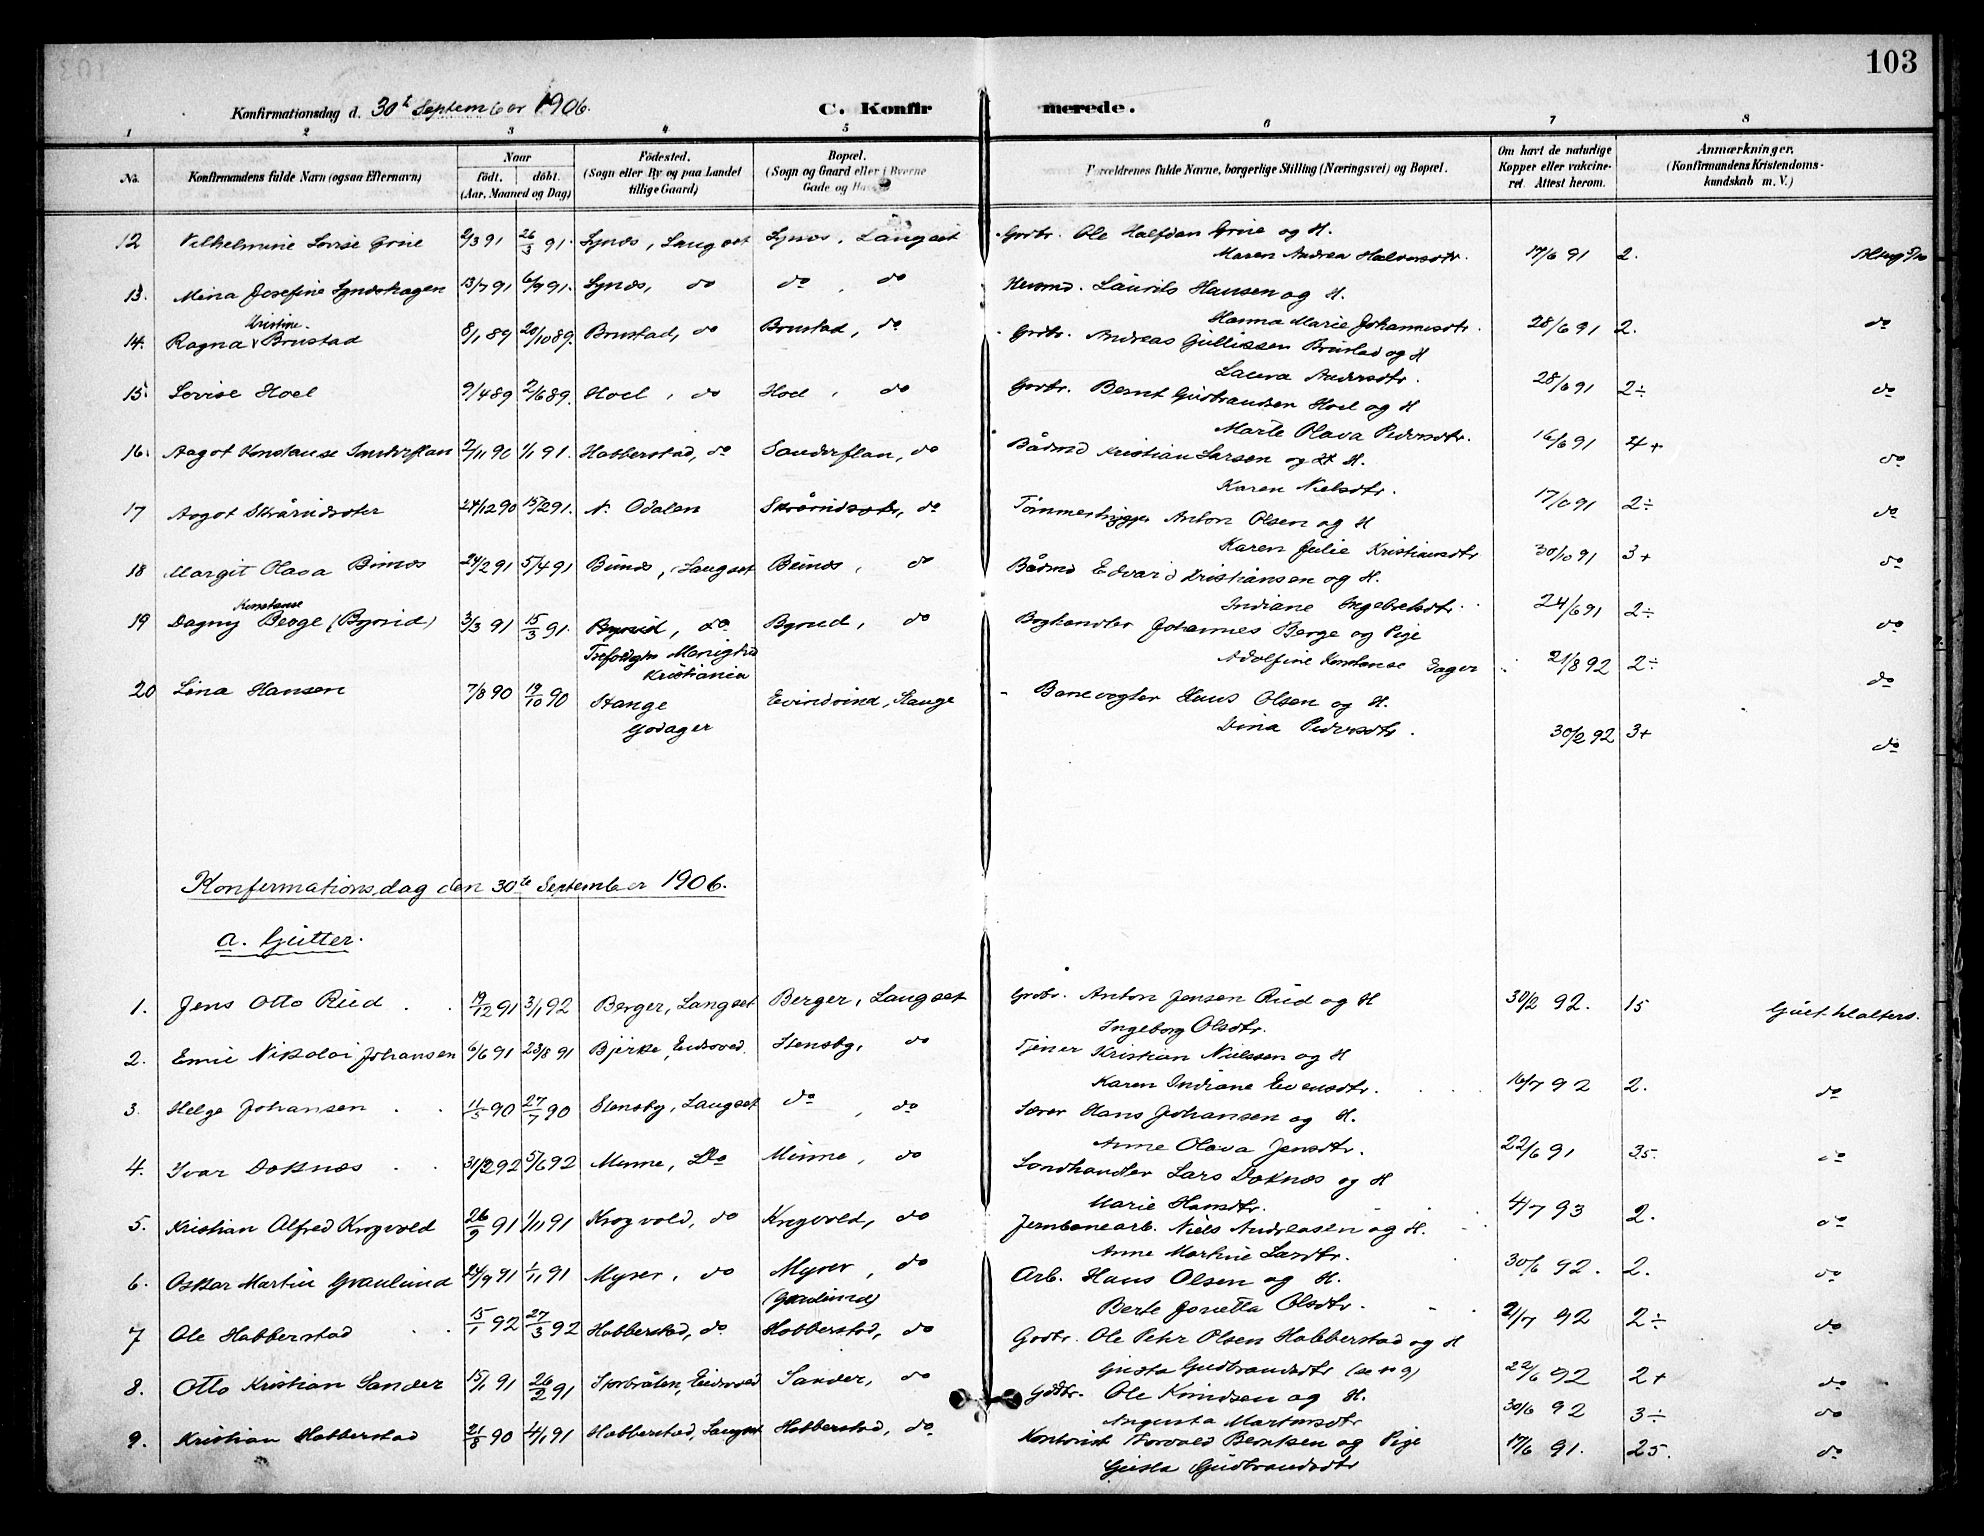 103
Konfirmationsdag d. 30te September 1906. C. Konfirmerede.
1 2 3 4 5 6 7 8
No. Konfirmandens fulde Navn (ogsaa Efternavn) Naar født. døbt. (Aar, Maaned og Dag) Fødested. (Sogn eller By og paa Landet tillige Gaard) Bopæl. (Sogn og Gaard eller i Byerne Gade og Hus) Forældrenes fulde Navne, borgerlige Stilling (Næringsvei) og Bopæl. Om havt de naturlige Kopper eller vakcineret. Attest herom. Anmærkninger. (Konfirmandens Kristendomskundskab m. V.)
12 Vilhelmine Lovise Grine 2/3 91 26/3 91. Lynæs, Langset Lynæs, Langset Grdbr. Ole Halfdan Grine og H.
Maren Andrea Halvorsdtr. 17/6 91 2.
13. Mina Josefine Lynæshagen 13/7 91 6/9 91. Lynæs, do do, do Husmd. Laurits Hansen og H.
Hanna Marie Johannesdtr. 28/6 91 2. do
14. Ragna Kristine Brustad 8/1 89 20/10 89. Brustad, do Brustad, do Grdbr. Andreas Gullissen Brustad og H
Laura Andersdtr. 28/6 91 2÷ do
15. Lovise Hoel 9/4 89 2/6 89. Hoel, do Hoel, do Grdbr. Bernt Gudbrandsen Hoel og H
Marte Olava Pedersdtr. 16/6 91 4+ do
16. Aagot Konstanse Sanderflan 2/11 90 1/1 91. Habberstad, do Sanderflan, do Bådmd Kristian Larsen og H.
Karen Nielsdtr. 17/6 91 2÷ do
17 Aagot Skårudsæter 24/12 90 15/2 91. N. Odalen Skårudsætr, do Tømmerhugger Anton Olsen og H
Karen Julie Kristiansdtr 30/10 91 3+ do
18 Margit Olava Bunæs 24/2 91 5/4 91 Bunæs, Langset Bunæs, do Bådmd Edvard Kristiansen og H.
Indiane Ingebretsdtr. 24/6 91 2÷ do
19 Dagny Konstanse Berge (Byrud) 3/3 91 15/3 91. Byrud, do Byrud, do Boghandler Johannes Berge og Pige
Trefoldighe Menighed Kristiania Adolfine Konstanse Eager 21/8 92 2÷ do
20 Lina Hansen 7/8 90 19/10 90 Stange Evindvind, Stange Banevogter Hans Olsen og H.
Godager Dina Pedersdtr. 30/2 92 3+ do
Konfermationsdag den 30te September 1906.
a. Gutter.
1. Jens Otto Rud 19/12 91 3/1 92 Berger, Langset Berger, Langset Grdbr. Anton Jensen Rud og H 30/2 92. 15
Ingeborg Olsdtr.
2. Emil Nikolai Johansen 6/6 91 23/8 91 Bjerke, Eidsvold. Stensby, do Tjener Kristian Nielsen og H
Karen Indiane Evensdtr. 16/7 92 2. do
3. Helge Johansen 11/5 90 27/7 90 Stensby, Langset do, do Lærer Hans Johansen og H.
Anne Olava Jensdtr. 22/6 91 35. do
4. Ivar Doknæs 31/2 92 5/6 92 Minne, do Minne, do Landhandler Lars Doknæs og H
Marie Hansdtr. 4/7 93 2. do
5. Kristian Alfred Krogvold 26/9 91 1/11 91 Krogvold, do Krogvold, do Jernbanearb. Niels Andreasen og H.
Anne Martine Larsdtr. 30/6 92. 2. do
6. Oskar Martin Graulund 24/9 91 1/11 91 Myrer, do Myrer, do Arb. Hans Olsen og H.
(Graulund) Berte Jonetta Olsdtr. 21/7 92 2÷ do
7 Ole Habberstad 15/1 92 27/3 92 Habberstad, do. Habberstad, do Grdbr. Ole Pehr Olsen Habberstad og H
Gusta Gudbrandsdtr (se n 9) 22/6 92 2+ do
8. Otto Kristian Sander 15/1 91 26/2 91 Storbråten, Eidsvold Sander, do Grdbr. Ole Knudsen og H.
Augusta Martinsdtr 30/6 92 3÷ do
9. Kristian Habberstad 21/8 90 4/1 91 Habberstad, Langset Habberstad, do. Kontorist Torvald Bentsen og Pige 17/6 91. 25. do
Gusta Gudbrandsdtr